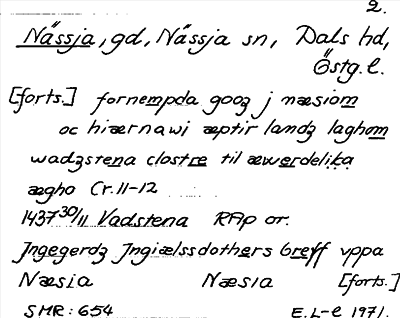 2.
Nässja, gd, Nässja sn, Dals hd,
Östg. l.
[forts.] fornempda gooz j næsiom
oc hiærnawi æptir landz laghom
wadzstena clostre til æwerdelika
ægho Cr. 11-12
1437 30/11 Vadstena RAp or.
Jngegerdz Jngiælssdothers breff vppa
Næsia Næsia [forts.]
SMR: 654 E. L-e 1971.